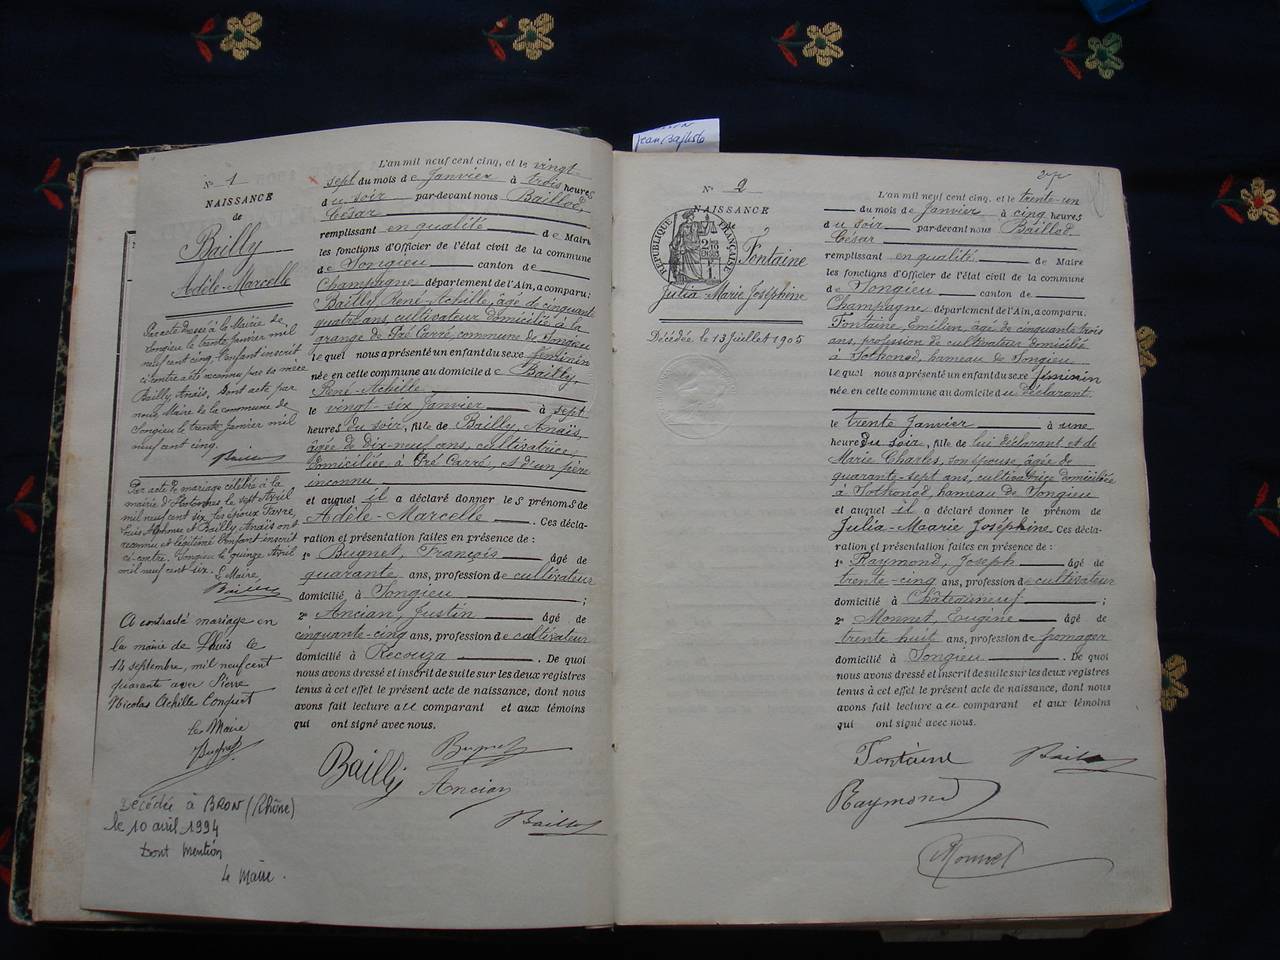 Jean Baptiste
N° 1
NAISSANCE
de
Bailly
Adèle-Marcelle
Par acte dressé à la Mairie de
Songieu le trente janvier mil
neuf cent cinq, l'enfant inscrit
ci-contre a été reconnu par sa mère
Bailly, Anaïs, Dont acte par
nous, Maire de la commune de
Songieu le trente Janvier mil
neuf cent cinq.
Par acte de mariage célébré à la
mairie d'Hotonnes le sept Avril
mil neuf cent six les époux Favre,
Louis Alphonse et Bailly Anaïs ont
reconnu et légitimé l'enfant inscrit
ci-contre. Songieu le quinze Avril
mil neuf cent six. Le Maire,
A contracté mariage en
la mairie de Lhuis le
14 septembre, mil neuf cent
quarante avec Pierre
Nicolas Achille
Le Maire
Bugnet
Décédée à BRON (Rhône)
le 10 avril 1994
Dont Mention
Le Maire.
L'an mil neuf cent cinq, et le vingt-
sept du mois de Janvier à trois heures
du soir par-devant nous Baillod,
César
remplissant en qualité de Maire
les fonctions d'Officier de l'état civil de la commune
de Songieu canton de
Champagne département de l'Ain, a comparu:
Bailly, René-Achille, âgé de cinquante
quatre ans, cultivateur domicilié à la
grange de Pré Carré, commune de Songieu
lequel nous a présenté un enfant du sexe féminin
née en cette commune au domicile de Bailly,
René-Achille
le vingt-six Janvier à sept
heures du soir, fille de Bailly, Anaïs,
âgée de dix-neuf ans, cultivatrice,
domiciliée à Pré Carré, et d'un père
inconnu
et auquel il a déclaré donner les prénoms de
Adèle-Marcelle. Ces décla-
ration et présentation faites en présence de :
1° Bugnet, François âgé de
quarante ans, profession de cultivateur
domicilié à Songieu ;
2° Ancian, Justin âgé de
cinquante-cinq ans, profession de cultivateur
domicilié à Recouza. De quoi
nous avons dressé et inscrit de suite sur les deux registres
tenus à cet effet le présent acte de naissance, dont nous
avons fait lecture au comparant et aux témoins
qui ont signé avec nous.
Bailly Bugnet
Ancian
N° 2
NAISSANCE
de
RÉPUBLIQUE FRANÇAISE
Fontaine
Julia Marie Joséphine
Décédée le 13 Juillet 1905
L'an mil neuf cent cinq, et le trente-un
du mois de Janvier à cinq heures
du soir par-devant nous Baillod
César
remplissant en qualité de Maire
les fonctions d'Officier de l'état civil de la commune
de Songieu canton de
Champagne département de l'Ain, a comparu:
Fontaine, Emilien, âgé de cinquante trois
ans, profession de cultivateur domicilié
à Sothonod, hameau de Songieu
lequel nous a présenté un enfant du sexe féminin
née en cette commune au domicile du déclarant
le trente Janvier à une
heure du soir, fille de lui déclarant et de
Marie Charles, son épouse, âgée de
quarante-sept ans, cultivatrice domiciliée
à Sothonod hameau de Songieu
et auquel il a déclaré donner le prénom de
Julia-Maarie Joséphine. Ces décla-
ration et présentation faites en présence de :
1° Raymond, Joseph âgé de
trente-cinq ans, profession de cultivateur
domicilié à Châteauneuf ;
2° Monnet, Eugène âgé de
trente huit ans, profession de fromager
domicilié à Songieu. De quoi
nous avons dressé et inscrit de suite sur les deux registres
tenus à cet effet le présent acte de naissance, dont nous
avons fait lecture au comparant et aux témoins
qui ont signé avec nous.
Fontaine
Raymond
Monnet